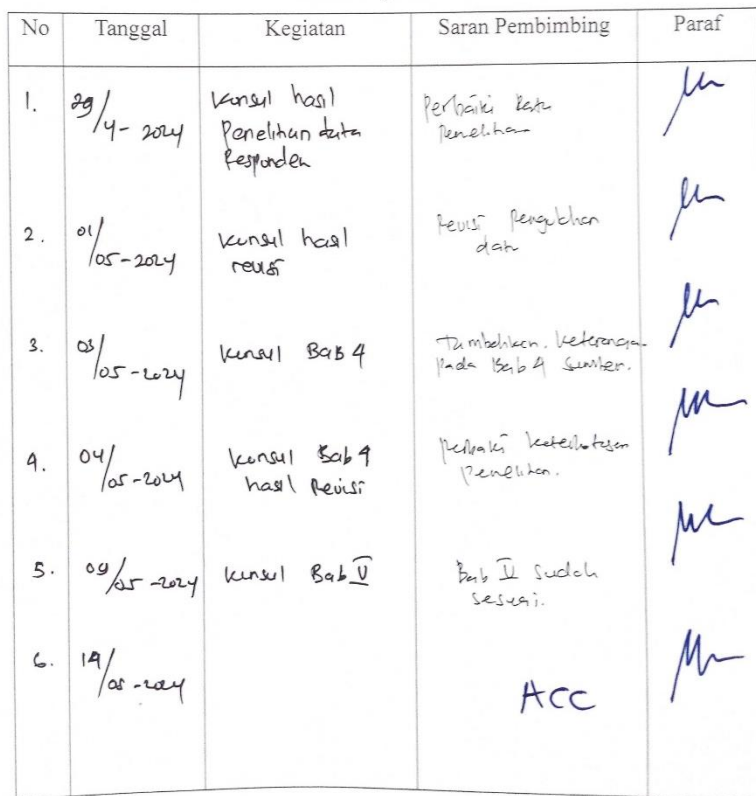 No Tanggal Kegiatan Saran Pembimbing Paraf
1. 29/4-2024 Konsul hasil Penelitian data Responden Perbaiki Penelitian
2. 01/05-2024 Konsul hasil revisi Revisi Pengolahan data
3. 03/05-2024 Konsul Bab 4 Tambahkan. Keterangan pada Bab 4 Sumber.
4. 04/05-2024 Konsul Bab 4 hasil Revisi Perbaiki keterbatasan Penelitian.
5. /05-2024 Konsul Bab V Bab sudah sesuai.
6. 14/05-2024 ACC